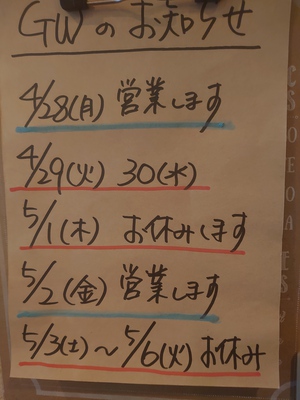 GWのお知らせ
4/28(月) 営業します
4/29(火) 30(水)
5/1(木) お休みします
5/2(金) 営業します
5/3(土)～5/6(火)お休み